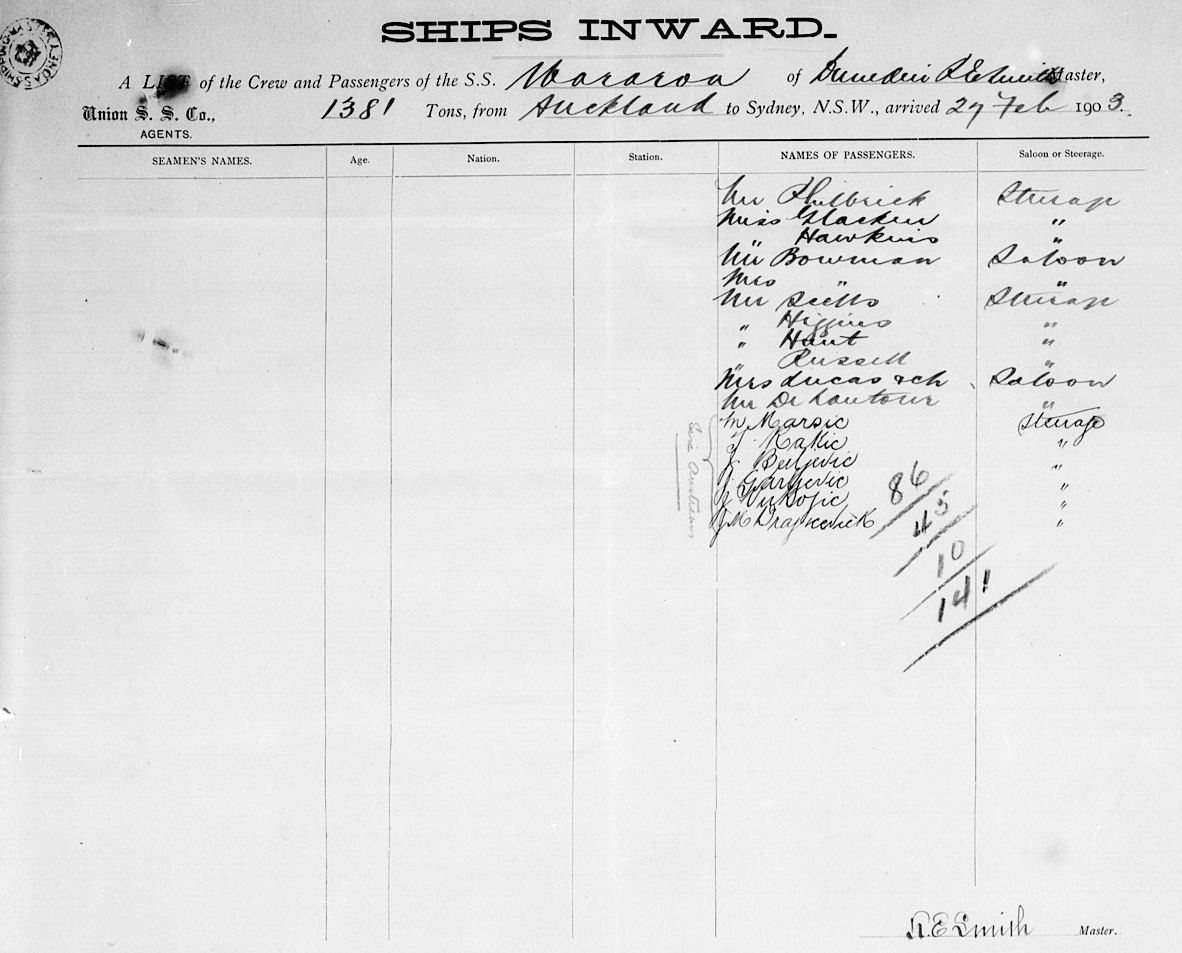 SHIPS INWARD.
A LIST of the Crew and Passengers of the S.S. Mararoa of Dunedin R E Smith Master,
Union S. S. Co., 1381 Tons, from Auckland to Sydney, N.S.W., arrived 27 Feb 1903.
AGENTS.
SEAMEN'S NAMES. Age. Nation. Station. NAMES OF PASSENGERS. Saloon or Steerage.
Mr Philbrick Steerage
Miss Glacken "
" Hawkins "
Mr Bowman Saloon
Mrs " "
Mr Steerage
" Higgins "
" Hunt "
" Russell "
Mrs Lucas & ch Saloon
Mr De Lautour "
M Marsic Steerage
J. Rakic "
J. "
J. "
J. "
J M "
Six Austrians
86
45
10
141
R.E Smith Master.